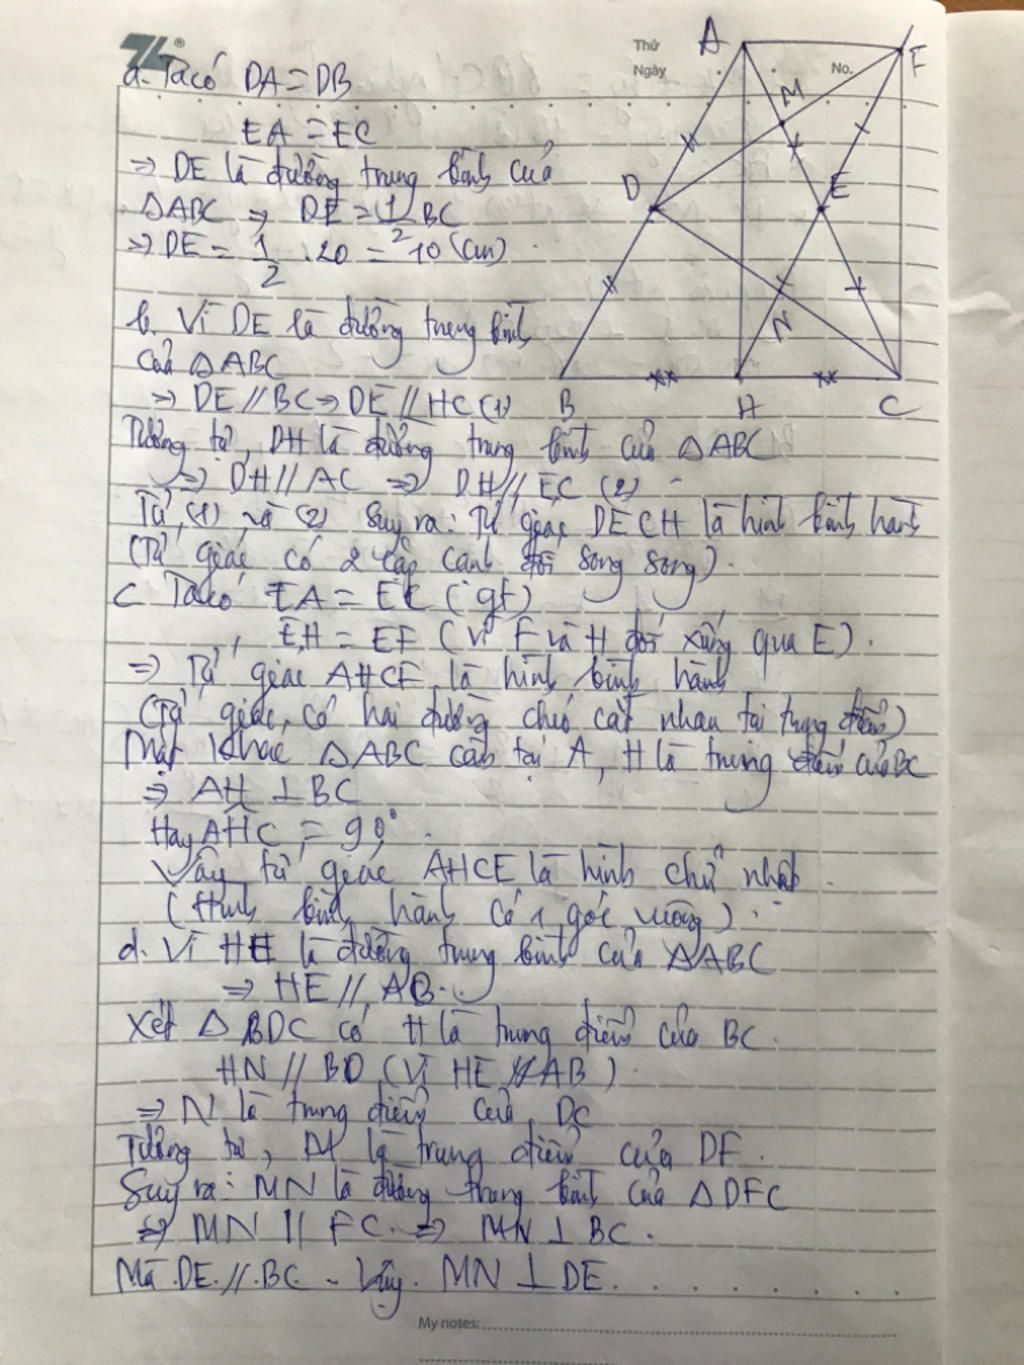 Thứ
Ngày
No.
A
F
M
D
E
N
B
H
C
a. Ta có DA = DB
EA = EC
=> DE là đường trung bình của
ΔABC => DE = 1/2 BC
=> DE = 1/2 . 20 = 10 (cm)
b. Vì DE là đường trung bình
của ΔABC
=> DE // BC => DE // HC (1)
Tương tự, DH là đường trung bình của ΔABC
=> DH // AC => DH // EC (2)
Từ (1) và (2) suy ra: Tứ giác DECH là hình bình hành
(Tứ giác có 2 cặp cạnh đối song song).
c Ta có EA = EC (gt)
EH = EF (vì F và H đối xứng qua E).
=> Tứ giác AHCF là hình bình hành
(Tứ giác có hai đường chéo cắt nhau tại trung điểm)
Mặt khác ΔABC cân tại A, H là trung điểm của BC
=> AH ⊥ BC
Hay AHC = 90°.
Vậy tứ giác AHCE là hình chữ nhật.
(Hình bình hành có 1 góc vuông).
d. Vì HE là đường trung bình của ΔABC
=> HE // AB.
Xét ΔBDC có H là trung điểm của BC.
HN // BD (Vì HE // AB)
=> N là trung điểm của DC
Tương tự, M là trung điểm của DF.
Suy ra: MN là đường trung bình của ΔDFC
=> MN // FC. => MN ⊥ BC.
Mà DE // BC. Vậy MN ⊥ DE.
My notes: